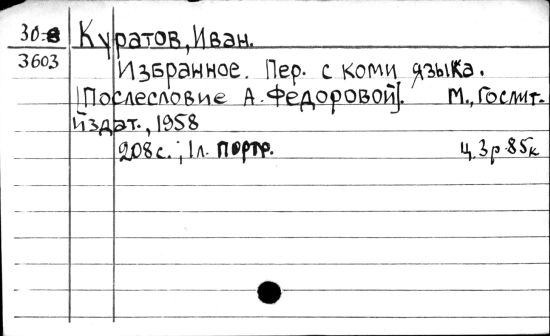 30-8 Куратов, Иван.
3603
Избранное. Пер. с коми языка.
[Послесловие А. Федоровой]. М., Гослит-
издат., 1958
208 с.; 1 л. портр. Ц. 3 р. 85 к